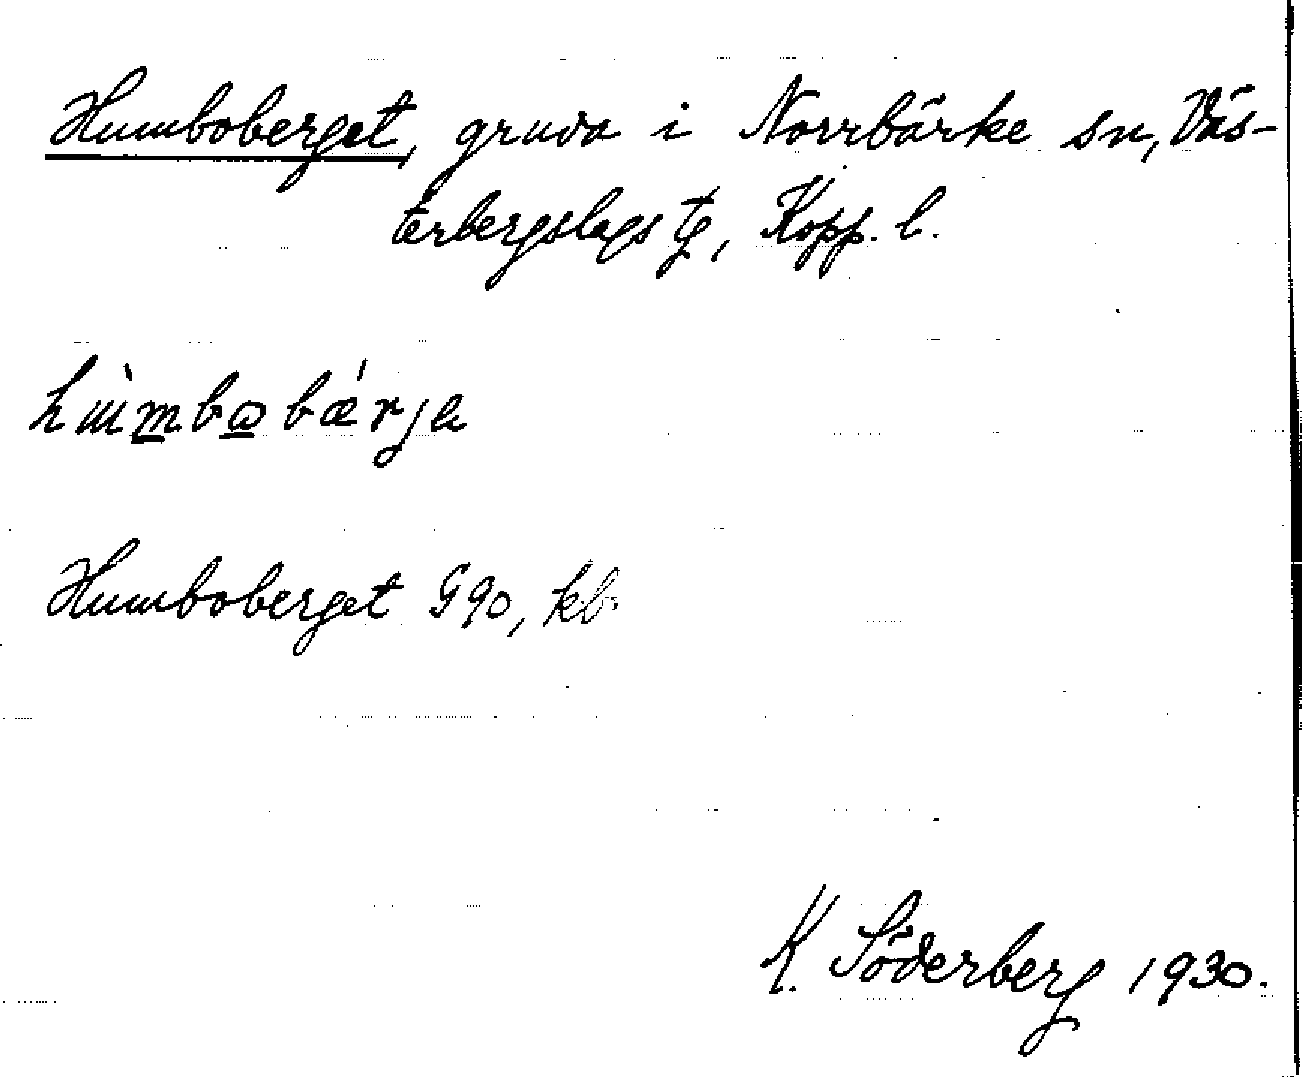 Humboberget, gruva i Norrbärke sn, Väs-
terbergslags tg, Kopp. l.
hùmbobǽrja
Humboberget G90, kb.
K. Söderberg 1930.